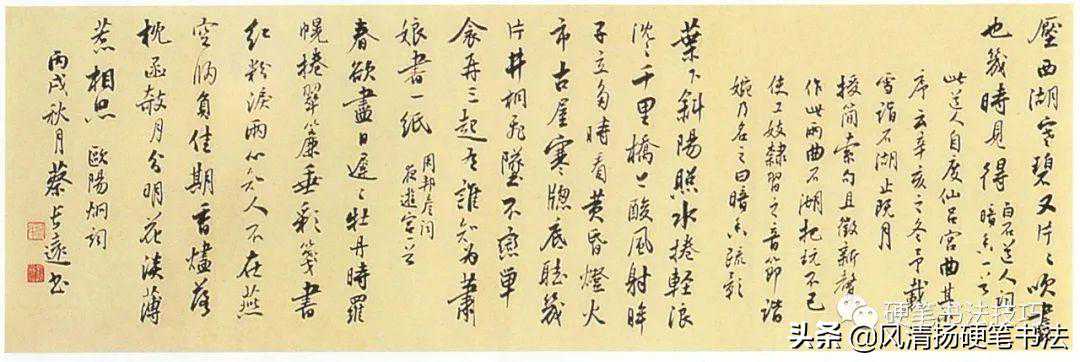 壓西湖寒碧又片〻吹盡
也幾時見得
白石道人詞
暗香一首
此道人自度仙呂宮曲其
序云辛亥之冬予載
雪詣石湖止既月
授簡索句且徵新聲
作此兩曲石湖把玩不已
使工妓隸習之音節諧
婉乃名之曰暗香疏影
葉下斜陽照水捲輕浪
沉〻千里橋上酸風射眸
子立多時看黃昏燈火
市古屋寒牕底聽幾
片井桐飛墜不戀單
衾再三起有誰知為蕭
娘書一紙
周邦彥詞
夜遊宮一首
春欲盡日遲〻牡丹時羅
幌捲翠簾垂彩箋書
紅粉淚兩心知人不在燕
空歸負佳期香燼落
枕函欹月分明花淡薄
惹相思 歐陽炯詞
丙戌秋月蔡書
硬笔书法技巧
头条 @风清扬硬笔书法